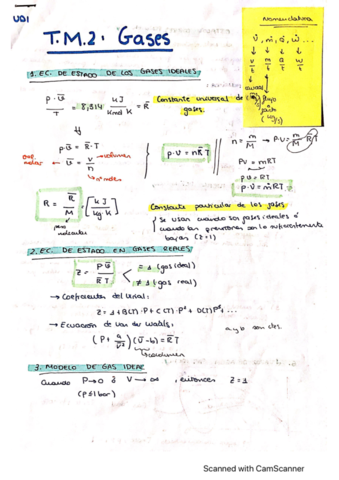 UD1
T.M.2: Gases
Nomenclatura
V̇, ṁ, Q̇, Ẇ...
V/t m/t Q/t W/t
1. EC. DE ESTADO DE LOS GASES IDEALES
P·ṽ/T = 8,314 kJ/kmol K = R̄
Constante universal de gases.
pṽ = R̄·T
ṽ = V/n → volumen
→ nº moles
p·V = nR̄T
n = m/M → P·V = m/M R̄T
PV = mRT
pv = RT
p·V̇ = ṁRT
R = R̄/M [kJ/kg K]
peso molecular
Constante particular de los gases.
Se usan cuando son gases ideales o
cuando las presiones son lo suficientemente
bajas (z=1)
2. EC. DE ESTADO EN GASES REALES
Z = Pṽ/R̄T
= 1 (gas ideal)
≠ 1 (gas real)
→ Coeficientes del Virial:
Z = 1 + B(T)·P + C(T)·P² + D(T)P³ + ...
→ Ecuación de Van der Waals:
a y b son ctes.
(P + a/ṽ²)(ṽ - b) = R̄T
3. MODELO DE GAS IDEAL
Cuando P→0 ó V→∞, entonces Z=1
(P≤1bar)
Scanned with CamScanner